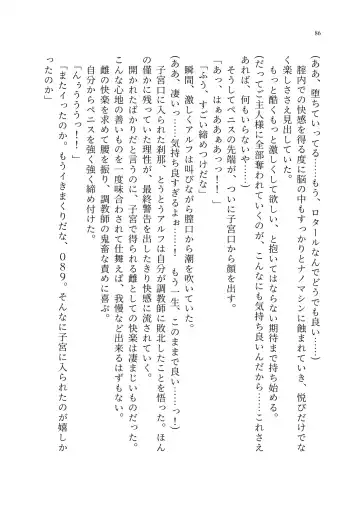 86
(ああ、堕ちていってる……もう、ロタールなんでどうでも良い……)
腟内での快感を得る度に脳の中もすっかりとナノマシンに蝕まれていき、悦びだけでな
く楽しささえ見出していた。
もっと酷くもっと激しくして欲しい、と抱いてはならない期待まで持ち始める。
(だってご主人様に全部奪われていくのが、こんなにも気持ち良いんだから……これさえ
あれば、何もいらないや……)
そうしてペニスの先端が、ついに子宮口から顔を出す。
「あっ、はぁああぁあっっ！」
「ふう、すごい締めつけだな」
瞬間、激しくアルフは叫びながら膣口から潮を吹いていた。
(ああ、凄いっ……気持ち良すぎるよぉ……！　もう一生、このままで良い……っ！)
子宮口に入られた刹那、とうとうアルフは自分が調教師に敗北したことを悟った。ほん
の僅かに残っていた理性が、最終警告を出したきり快感に流されていく。
開かれたばかりだと言うのに、子宮で得られる雌としての快楽は凄まじいものだった。
こんな心地の善いものを一度味合わされて仕舞えば、我慢など出来るはずもない。
雌の快楽を求めて腰を振り、調教師の鬼畜な責めに喜ぶ。
自分からペニスを強く強く締め付けた。
「んぅううっ！！」
「またイったのか。もうイきまくりだな、０８９。そんなに子宮に入られたのが嬉しか
ったのか」